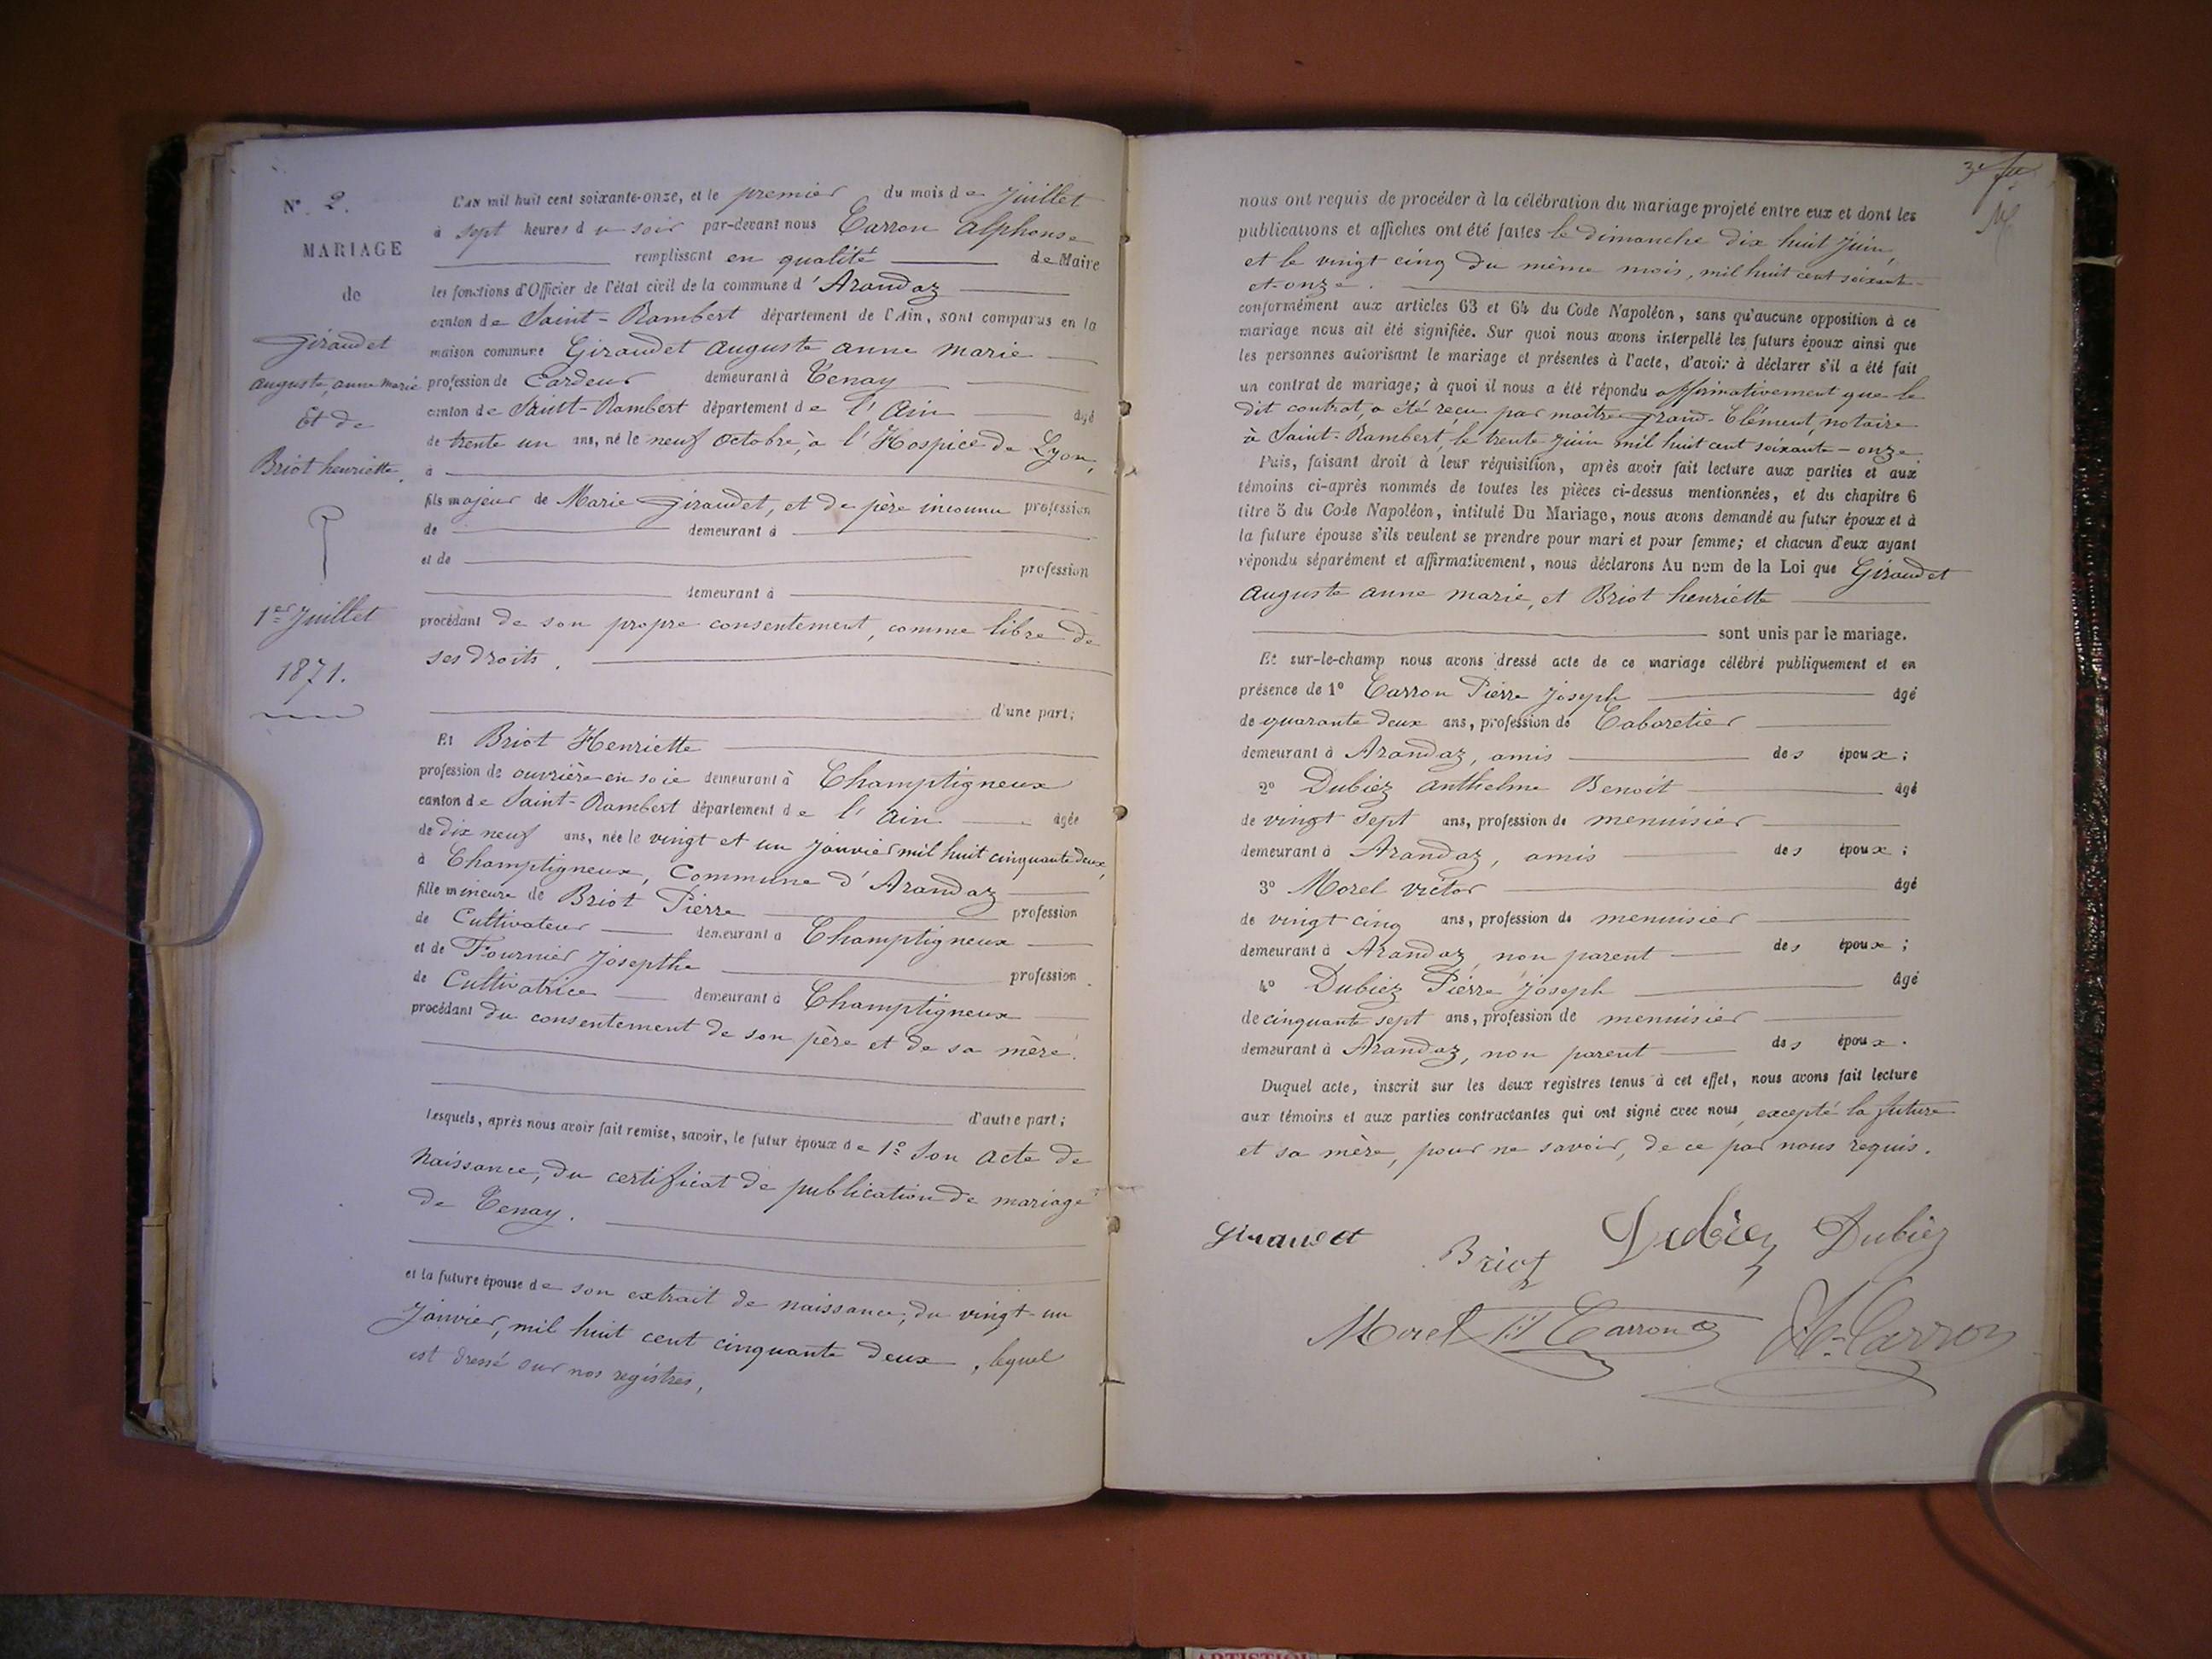 N° 2.
MARIAGE
de
Giraudet
auguste, anne marie
Et de
Briot henriette.
1er Juillet
1871.
L'AN mil huit cent soixante-onze, et le premier du mois de Juillet
à sept heures du soir par-devant nous Carron alphonse
remplissant en qualité de Maire
les fonctions d'Officier de l'état civil de la commune d'Arandaz
canton de Saint-Rambert département de l'Ain, sont comparus en la
maison commune Giraudet auguste anne marie
profession de Cardeur demeurant à Tenay
canton de Saint-Rambert département de l'Ain âgé
de trente un ans, né le neuf octobre, à l'Hospice de Lyon,
à
fils majeur de Marie Giraudet, et de père inconnu profession
de demeurant à
et de profession
demeurant à
procédant de son propre consentement, comme libre de
ses droits.
d'une part;
Et Briot Henriette
profession de ouvrière en soie demeurant à Champtigneux
canton de Saint-Rambert département de l'Ain âgée
de dix neuf ans, née le vingt et un janvier mil huit cinquante deux,
à Champtigneux, Commune d'Arandaz
fille mineure de Briot Pierre profession
de Cultivateur demeurant à Champtigneux
et de Fournier Josepthe profession
de Cultivatrice demeurant à Champtigneux
procédant du consentement de son père et de sa mère.
d'autre part;
Lesquels, après nous avoir fait remise, savoir, le futur époux de 1° Son acte de
Naissance, du certificat de publication de mariage
de Tenay.
et la future épouse de son extrait de naissance, du vingt-un
Janvier, mil huit cent cinquante deux, lequel
est dressé sur nos registres,
nous ont requis de procéder à la célébration du mariage projeté entre eux et dont les
publications et affiches ont été faites le dimanche dix huit juin,
et le vingt cinq du même mois, mil huit cent soixante
et-onze.
conformément aux articles 63 et 64 du Code Napoléon, sans qu'aucune opposition à ce
mariage nous ait été signifiée. Sur quoi nous avons interpellé les futurs époux ainsi que
les personnes autorisant le mariage et présentes à l'acte, d'avoir à déclarer s'il a été fait
un contrat de mariage; à quoi il nous a été répondu affirmativement que le
dit contrat, a été reçu par maître Grand-Clément, notaire
à Saint-Rambert, le trente juin mil huit cent soixante-onze
Puis, faisant droit à leur réquisition, après avoir fait lecture aux parties et aux
témoins ci-après nommés de toutes les pièces ci-dessus mentionnées, et du chapitre 6
titre 5 du Code Napoléon, intitulé Du Mariage, nous avons demandé au futur époux et à
la future épouse s'ils veulent se prendre pour mari et pour femme; et chacun d'eux ayant
répondu séparément et affirmativement, nous déclarons Au nom de la Loi que Giraudet
auguste anne marie, et Briot henriette
sont unis par le mariage.
Et sur-le-champ nous avons dressé acte de ce mariage célébré publiquement et en
présence de 1° Carron Pierre Joseph âgé
de quarante deux ans, profession de Cabaretier
demeurant à Arandaz, amis des époux;
2° Dubiez anthelme Benoit âgé
de vingt sept ans, profession de menuisier
demeurant à Arandaz, amis des époux;
3° Morel victor âgé
de vingt cinq ans, profession de menuisier
demeurant à Arandaz, non parent des époux;
4° Dubiez Pierre Joseph âgé
de cinquante sept ans, profession de menuisier
demeurant à Arandaz, non parent des époux.
Duquel acte, inscrit sur les deux registres tenus à cet effet, nous avons fait lecture
aux témoins et aux parties contractantes qui ont signé avec nous, excepté la future
et sa mère, pour ne savoir, de ce par nous requis.
Giraudet Briot Dubiez Dubiez
Morel Carron Carron